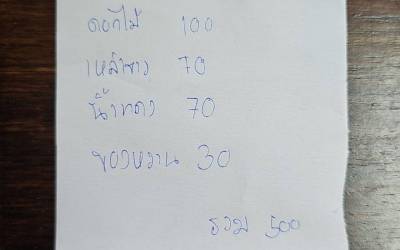 ดอกไม้ 100
เหล้าขาว 70
น้ำแดง 70
ของหวาน 30
รวม 500